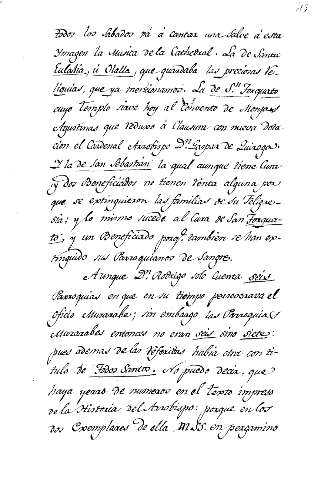 todos los Sabados vá á cantar una Salve á esta
Ymagen la Musica de la Cathedral. La de Santa
Eulalia, ú Olalla, que guardaba las preciosas Re-
liquias, que ya mencionamos. La de Sn. Torquato
cuyo Templo sirve hoy al Convento de Monjas
Agustinas que reduxo á Clausura con nueva dota-
cion el Cardenal Arzobispo Dn. Gaspar de Quiroga.
Y la de San Sebastian la qual aunque tiene Cura
y dos Beneficiados no tienen renta alguna por
que se extinguieron las familias de su Feligre-
sia; y lo mismo sucede al Cura de San Torqua-
to, y un Beneficiado porq.e tambien se han ex-
tinguido sus Parroquianos de Sangre.
Aunque Dn. Rodrigo solo cuenta seis
Parroquias en que en su tiempo perseveraba el
Oficio Muzarabe; sin embargo las Parroquias
Muzarabes entonces no eran seis sino siete:
pues ademas de las referidas habia otra con ti-
tulo de Todos Santos. No puedo decir, que
haya yerro de numeros en el texto impreso
de la Historia del Arzobispo: porque en los
dos Exemplares de ella M.SS. en pergamino